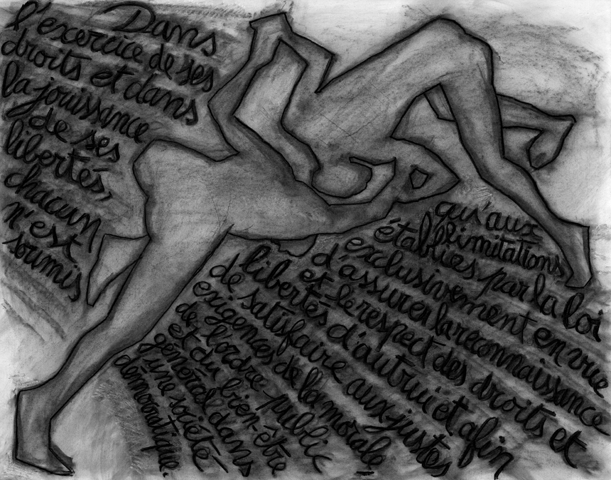 Dans
l'exercice de ses
droits et dans
la jouissance
de ses
libertés,
chacun
n'est
soumis
qu'aux
limitations
établies par la loi
exclusivement en vue
d'assurer la reconnaissance
et le respect des droits et
libertés d'autrui et afin
de satisfaire aux justes
exigences de la morale
de l'ordre public
et du bien-être
général dans
une société
démocratique.